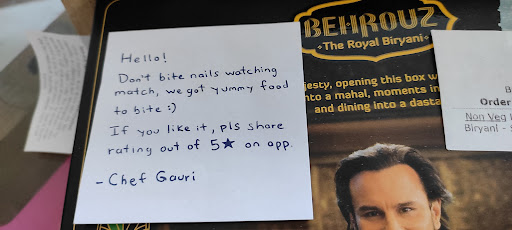 Hello!
Don't bite nails watching
match, we got yummy food
to bite :)
If you like it, pls share
rating out of 5★ on app.
- Chef Gauri
BEHROUZ
The Royal Biryani
jesty, opening this box w
nto a mahal, moments in
and dining into a dasta
B
Order
Non Veg
Biryani - S